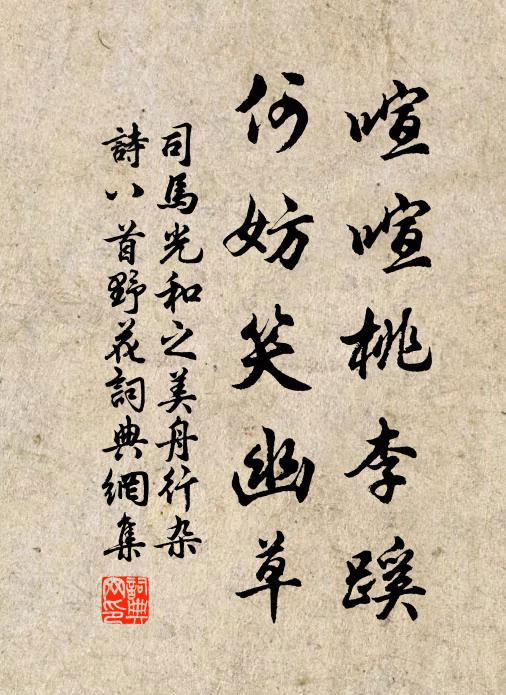 喧喧桃李蹊
何妨笑幽草
司馬光和之美舟行杂
詩八首野花詞典網集
詞典网印